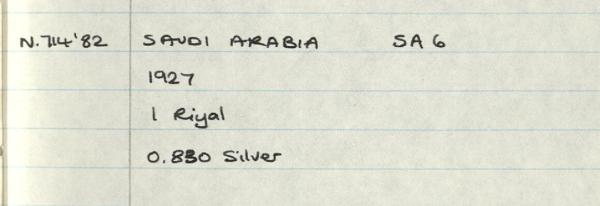 N.714'82 SAUDI ARABIA SA 6
1927
1 Riyal
0.830 Silver